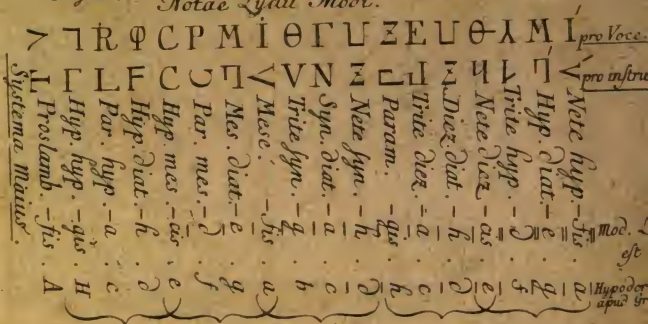 Notae Lydii Modi.
> ˥ R Φ C P M İ Θ Γ U Z E U Θ ⅄ Ḿ Í pro Voce.
⊥ Γ L F C ᴗ Π < V N Z ⊏ Ⅎ Z Ч Ⱶ Π́ <́ pro instru
Systema maius.
Proslamb. – fis. A
Hyp. hyp. – gis. H
Par. hyp. – a . c
Hyp. diat – h . d
Hyp. mes. – cis . e
Par. mes. – d . f
Mes. diat. – e . g
Mese. – fis . a
Trite syn. – g . b
Syn. diat. – a . c
Nete syn. – h . d
Param. – gis . h
Trite diez. – a . c
Diez. diat. – h . d
Nete diez – cis . e
Trite hyp. – d . f
Hyp. diat – e . g
Nete hyp. – fis . a
Mod. L
est
Hypodor
apud gr